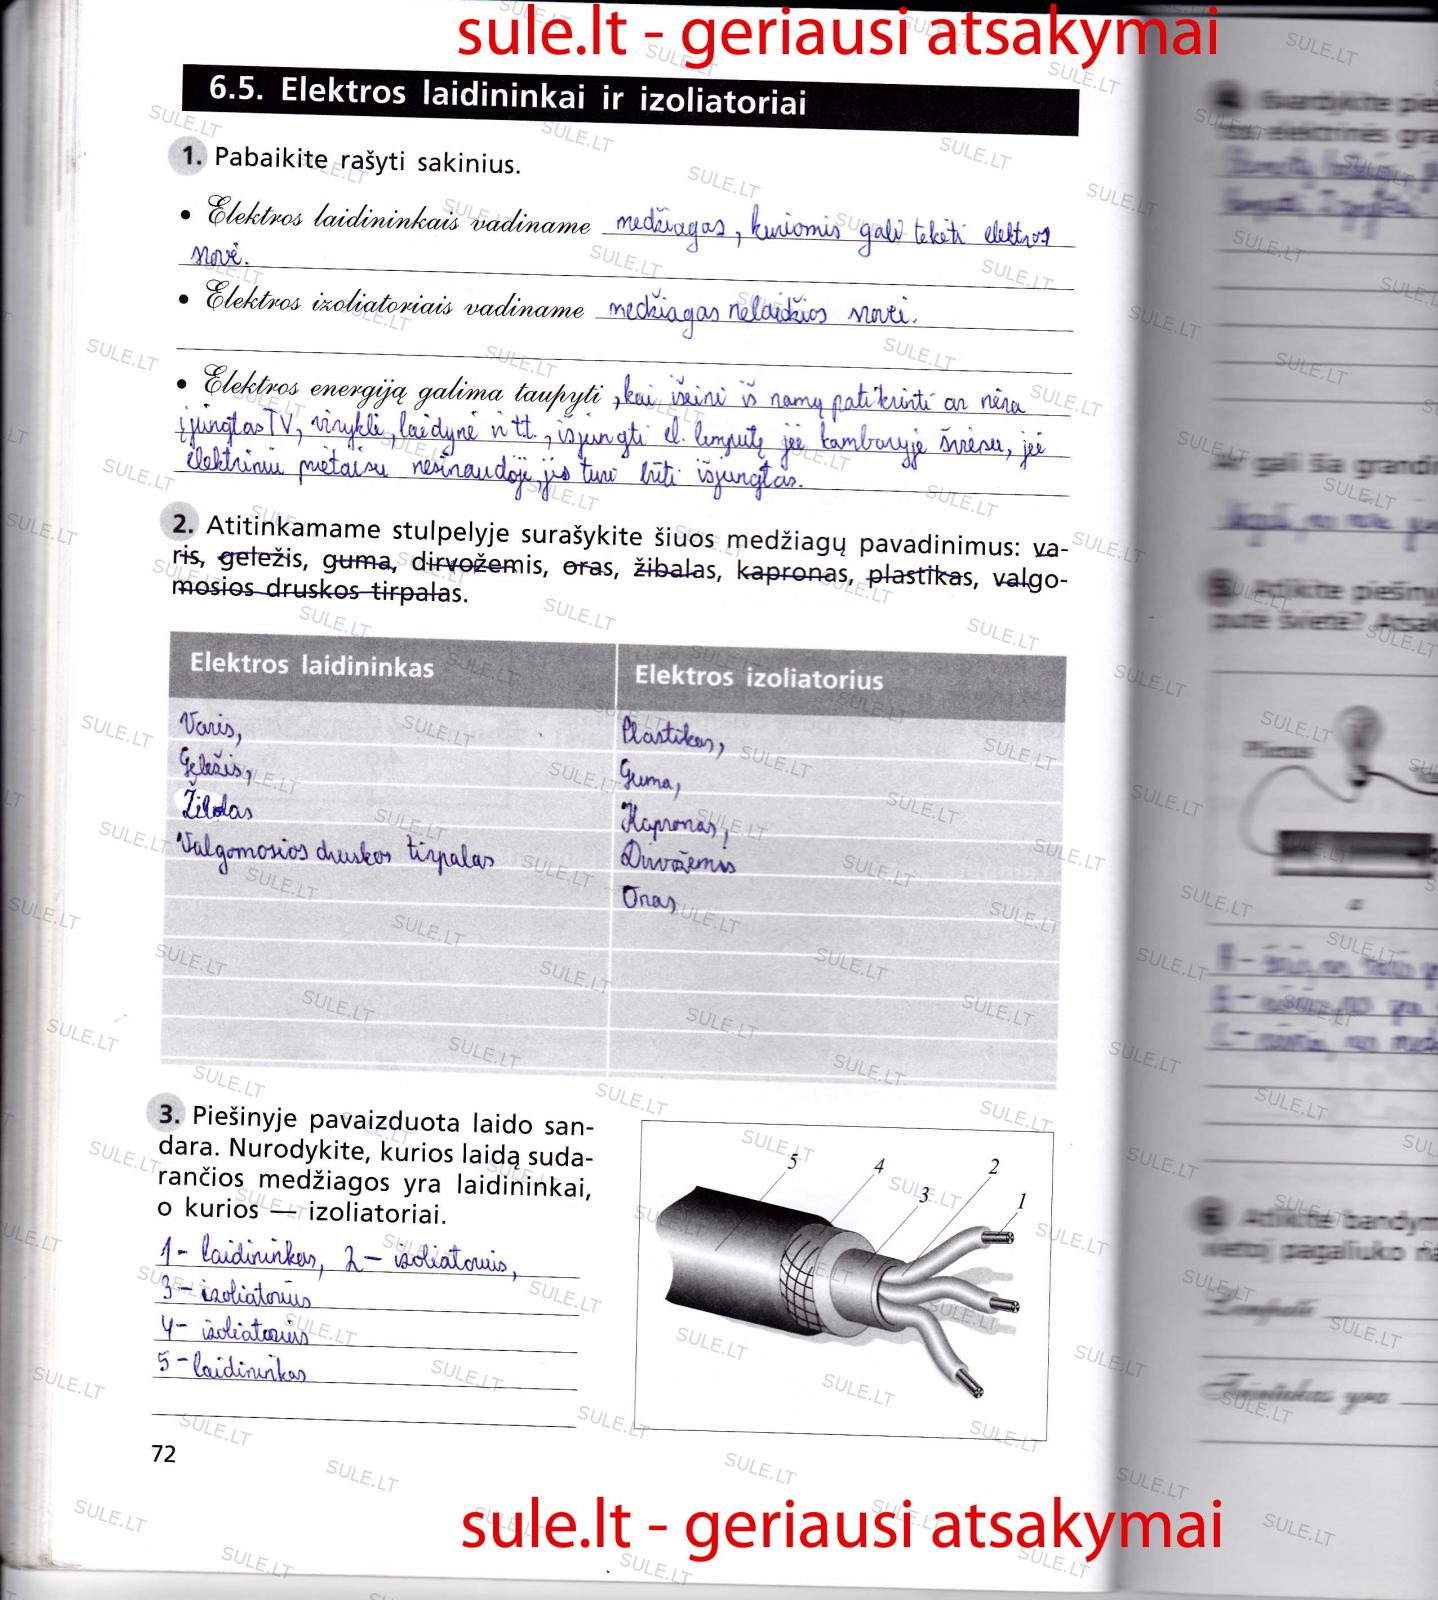 sule.lt - geriausi atsakymai
6.5. Elektros laidininkai ir izoliatoriai
1. Pabaikite rašyti sakinius.
• Elektros laidininkais vadiname medžiagas, kuriomis gali tekėti elektros
srovė.
• Elektros izoliatoriais vadiname medžiagas nelaidžios srovei.
• Elektros energiją galima taupyti , kai išeini iš namų patikrinti ar nėra
įjungtas TV, viryklė, laidynė ir tt., išjungti el. lemputę jei kambaryje šviesu, jei
elektriniu prietaisu nesinaudoji, jis turi būti išjungtas.
2. Atitinkamame stulpelyje surašykite šiuos medžiagų pavadinimus: va-
ris, geležis, guma, dirvožemis, oras, žibalas, kapronas, plastikas, valgo-
mosios druskos tirpalas.
Elektros laidininkas Elektros izoliatorius
Varis, Plastikas,
Geležis, Guma,
Žibalas Kapronas,
Valgomosios druskos tirpalas Dirvožemis
Oras
3. Piešinyje pavaizduota laido san-
dara. Nurodykite, kurios laidą suda-
rančios medžiagos yra laidininkai,
o kurios — izoliatoriai.
1 - laidininkas, 2 - izoliatorius,
3 - izoliatorius
4 - izoliatorius
5 - laidininkas
5 4 3 2 1
72
sule.lt - geriausi atsakymai